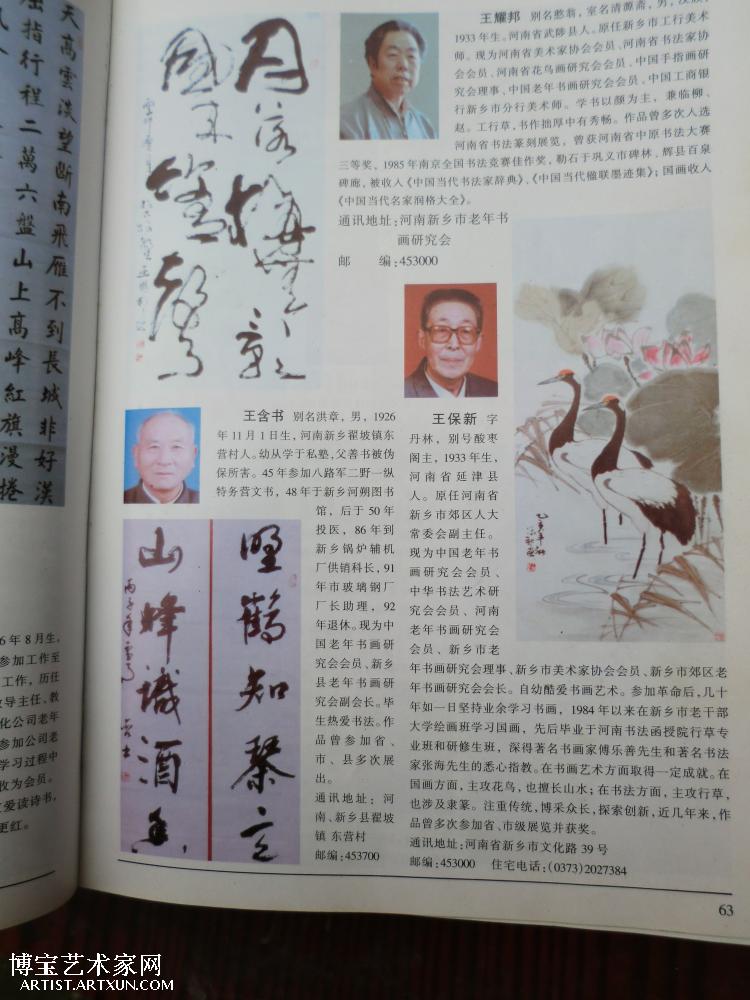 天高雲淡望斷南飛雁不到長城非好漢
屈指行程二萬六盤山上高峰紅旗漫捲
6年8月生,
参加工作至
工作,历任
教导主任、教
化公司老年
参加公司老
学习过程中
收为会员。
爱读诗书,
更红。
王耀邦 别名憨翁,室名清源斋,男,汉族,
1933年生。河南省武陟县人。原任新乡市工行美术
师。现为河南省美术家协会会员、河南省书法家协
会会员、河南省花鸟画研究会会员、中国手指画研
究会理事、中国老年书画研究会会员、中国工商银
行新乡市分行美术师。学书以颜为主,兼临柳、
赵。工行草,书作拙厚中有秀畅。作品曾多次入选
河南省书法篆刻展览,曾获河南省中原书法大赛
三等奖、1985年南京全国书法竞赛佳作奖,勒石于巩义市碑林、辉县百泉
碑廊,被收入《中国当代书法家辞典》、《中国当代楹联墨迹集》;国画收入
《中国当代名家润格大全》。
通讯地址:河南新乡市老年书
画研究会
邮 编:453000
王含书 别名洪章,男,1926
年11月1日生,河南新乡翟坡镇东
营村人。幼从学于私塾,父善书被伪
保所害。45年参加八路军二野一纵
特务营文书,48年于新乡河朔图书
馆,后于50年
投医,86年到
新乡锅炉辅机
厂供销科长,91
年市玻璃钢厂
厂长助理,92
年退休。现为中
国老年书画研
究会会员、新乡
县老年书画研
究会副会长。毕
生热爱书法。作
品曾参加省、
市、县多次展
出。
通讯地址:河
南、新乡县翟坡
镇 东营村
邮编:453700
野鹤知琴意
山蜂識酒香
丙子年
王保新 字
丹林,别号酸枣
阁主,1933年生,
河南省延津县
人。原任河南省
新乡市郊区人大
常委会副主任。
现为中国老年书
画研究会会员、
中华书法艺术研
究会会员、河南
老年书画研究会
会员、新乡市老
年书画研究会理事、新乡市美术家协会会员、新乡市郊区老
年书画研究会会长。自幼酷爱书画艺术。参加革命后,几十
年如一日坚持业余学习书画,1984年以来在新乡市老干部
大学绘画班学习国画,先后毕业于河南书法函授院行草专
业班和研修生班,深得著名书画家博乐善先生和著名书法
家张海先生的悉心指教。在书画艺术方面取得一定成就。在
国画方面,主攻花鸟,也擅长山水;在书法方面,主攻行草,
也涉及隶篆。注重传统,博采众长,探索创新,近几年来,作
品曾多次参加省、市级展览并获奖。
通讯地址:河南省新乡市文化路39号
邮编:453000 住宅电话:(0373)2027384
63
博宝艺术家网
ARTIST.ARTXUN.COM